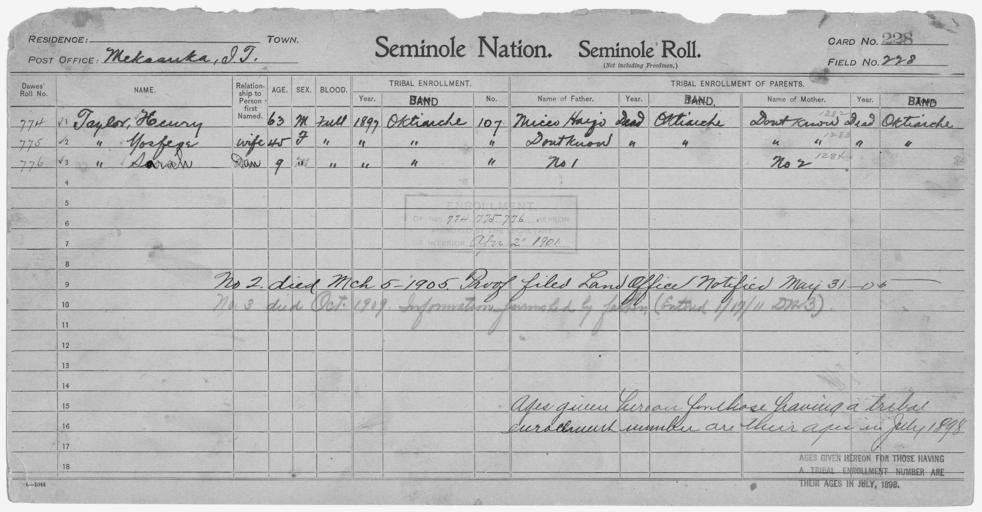 RESIDENCE: TOWN.
POST OFFICE: Mekasuka, I.T.
Seminole Nation. Seminole Roll.
(Not including Freedmen.)
CARD NO. 228
FIELD NO. 228
Dawes' Roll No. NAME. Relationship to Person first Named. AGE. SEX. BLOOD. TRIBAL ENROLLMENT. TRIBAL ENROLLMENT OF PARENTS.
Year. BAND No. Name of Father. Year. BAND. Name of Mother. Year. BAND
774 1 Taylor, Henry 63 M Full 1897 Oktiarche 107 Micco Harjo Dead Oktiarche Dont Know Dead Oktiarche
775 2 " Yosfege wife 45 F " " " " Dont Know " " " " " "
776 3 " Sarah Dau 9 " " " " No 1 No 2 1284
4
5
ENROLLMENT.
6 OF NOS. 774 775 776 HEREON
7 INTERIOR Apr 2 1901
8
9 No 2. died Mch 5-1905. Proof filed Land Office Notified May 31-05
10 No. 3 died Oct. 1909. Information furnished by father (Entered 1/17/11
11
12
13
14
15 Ages given hereon for those having a tribal
16 enrollment number are their ages in July 1898
17
AGES GIVEN HEREON FOR THOSE HAVING
18 A TRIBAL ENROLLMENT NUMBER ARE
THEIR AGES IN JULY, 1898.